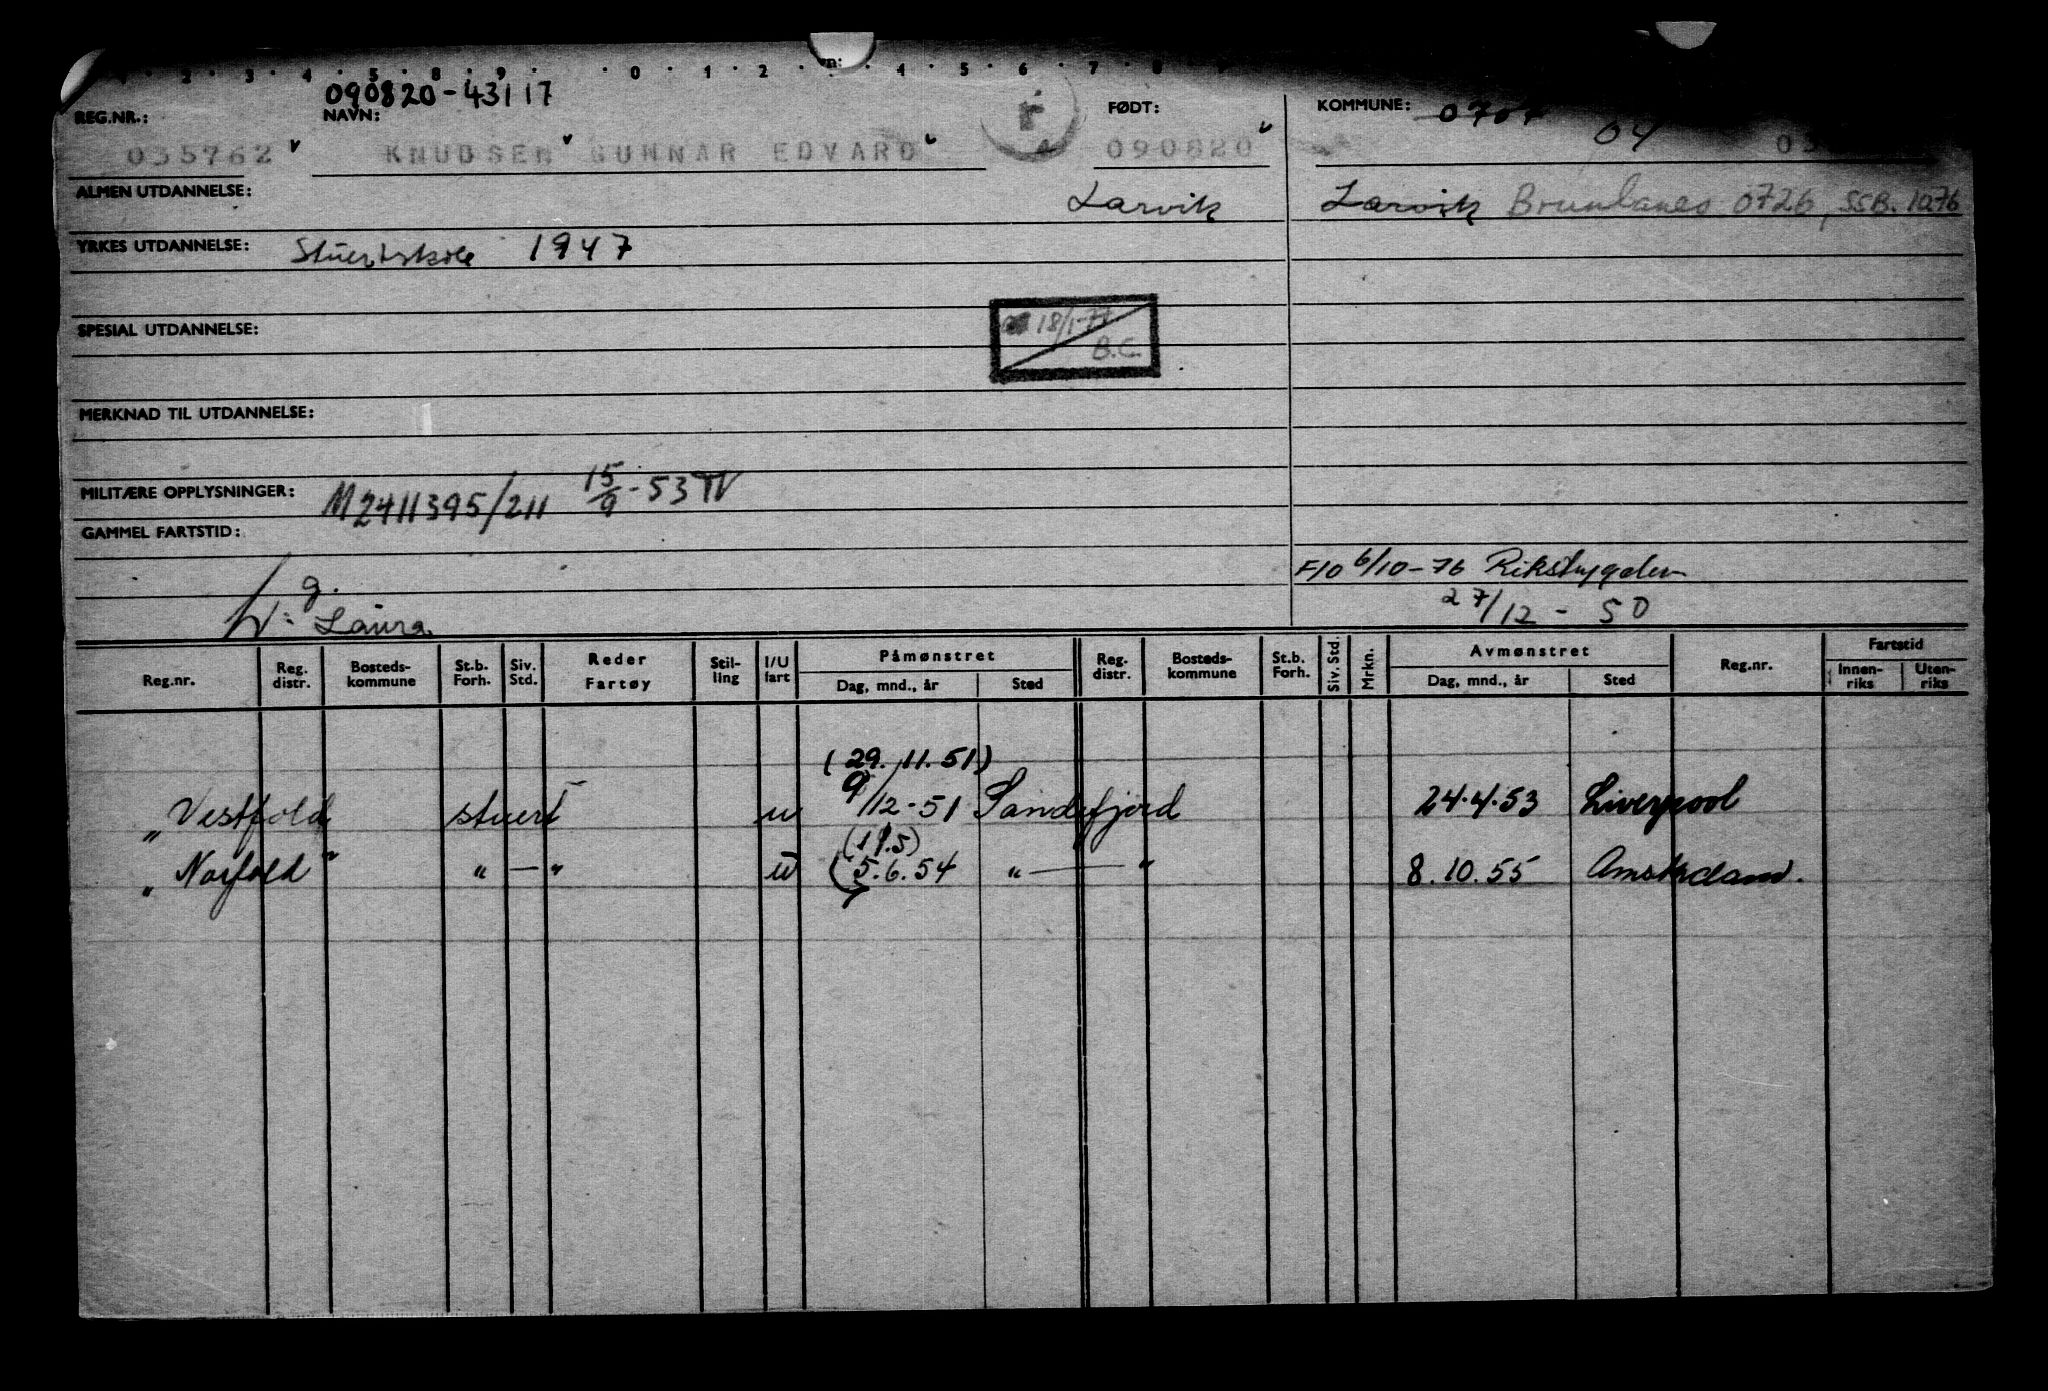 1 · 2 · 3 · 4 · 5 · 8 · 9 · · 0 · 1 · 2 · · 4 · 5 · 6 · 7 · 8
090820-43117
REG.NR.: NAVN: FØDT: KOMMUNE: 0707
04
035762 KNUDSEN GUNNAR EDVARD 090820
ALMEN UTDANNELSE: Larvik Larvik Brunlanes 0726, SSB. 1076
YRKES UTDANNELSE: Stuertskole 1947
SPESIAL UTDANNELSE: 18/1-77
B.C.
MERKNAD TIL UTDANNELSE:
MILITÆRE OPPLYSNINGER: M2411395/211 15/9-53 TV
GAMMEL FARTSTID:
F10 6/10-76 Rikstrygden
g. 27/12 - 50
Laura
Reg.nr. Reg. distr. Bosteds-kommune St.b. Forh. Siv. Std. Reder Fartøy Stil-ling I/U fart Påmønstret Dag, mnd., år Sted Reg. distr. Bosteds-kommune St.b. Forh. Siv. Std. Mrkn. Avmønstret Dag, mnd., år Sted Reg.nr. Fartstid Innen-riks Uten-riks
(29. 11. 51)
„ Vestfold stuert u 9/12-51 Sandefjord 24.4.53 Liverpool
(11.5)
„ Norfold " " — " u (5.6.54 " — " 8.10.55 Amsterdam.